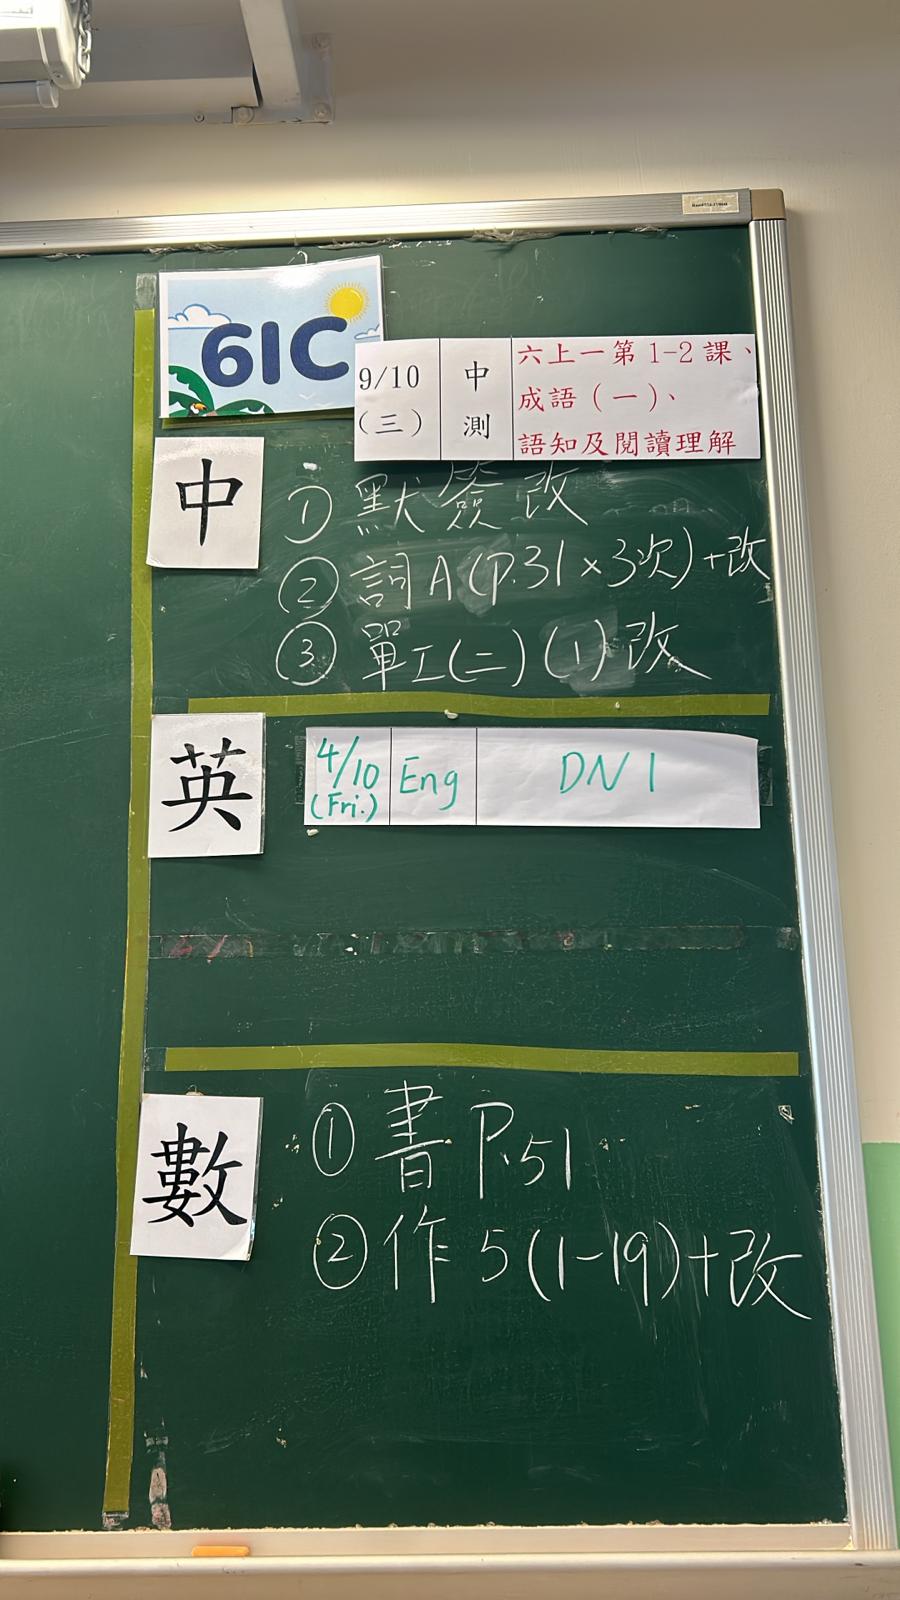 61C
9/10
(三)
中
測
六上一第1-2課、
成語(一)、
語知及閱讀理解
中
① 默簽改
② 詞A(p.31×3次)+改
③ 單工(二)(1)改
英
4/10
(Fri.)
Eng
DN 1
數
① 書 P.51
② 作 5(1-19)+改